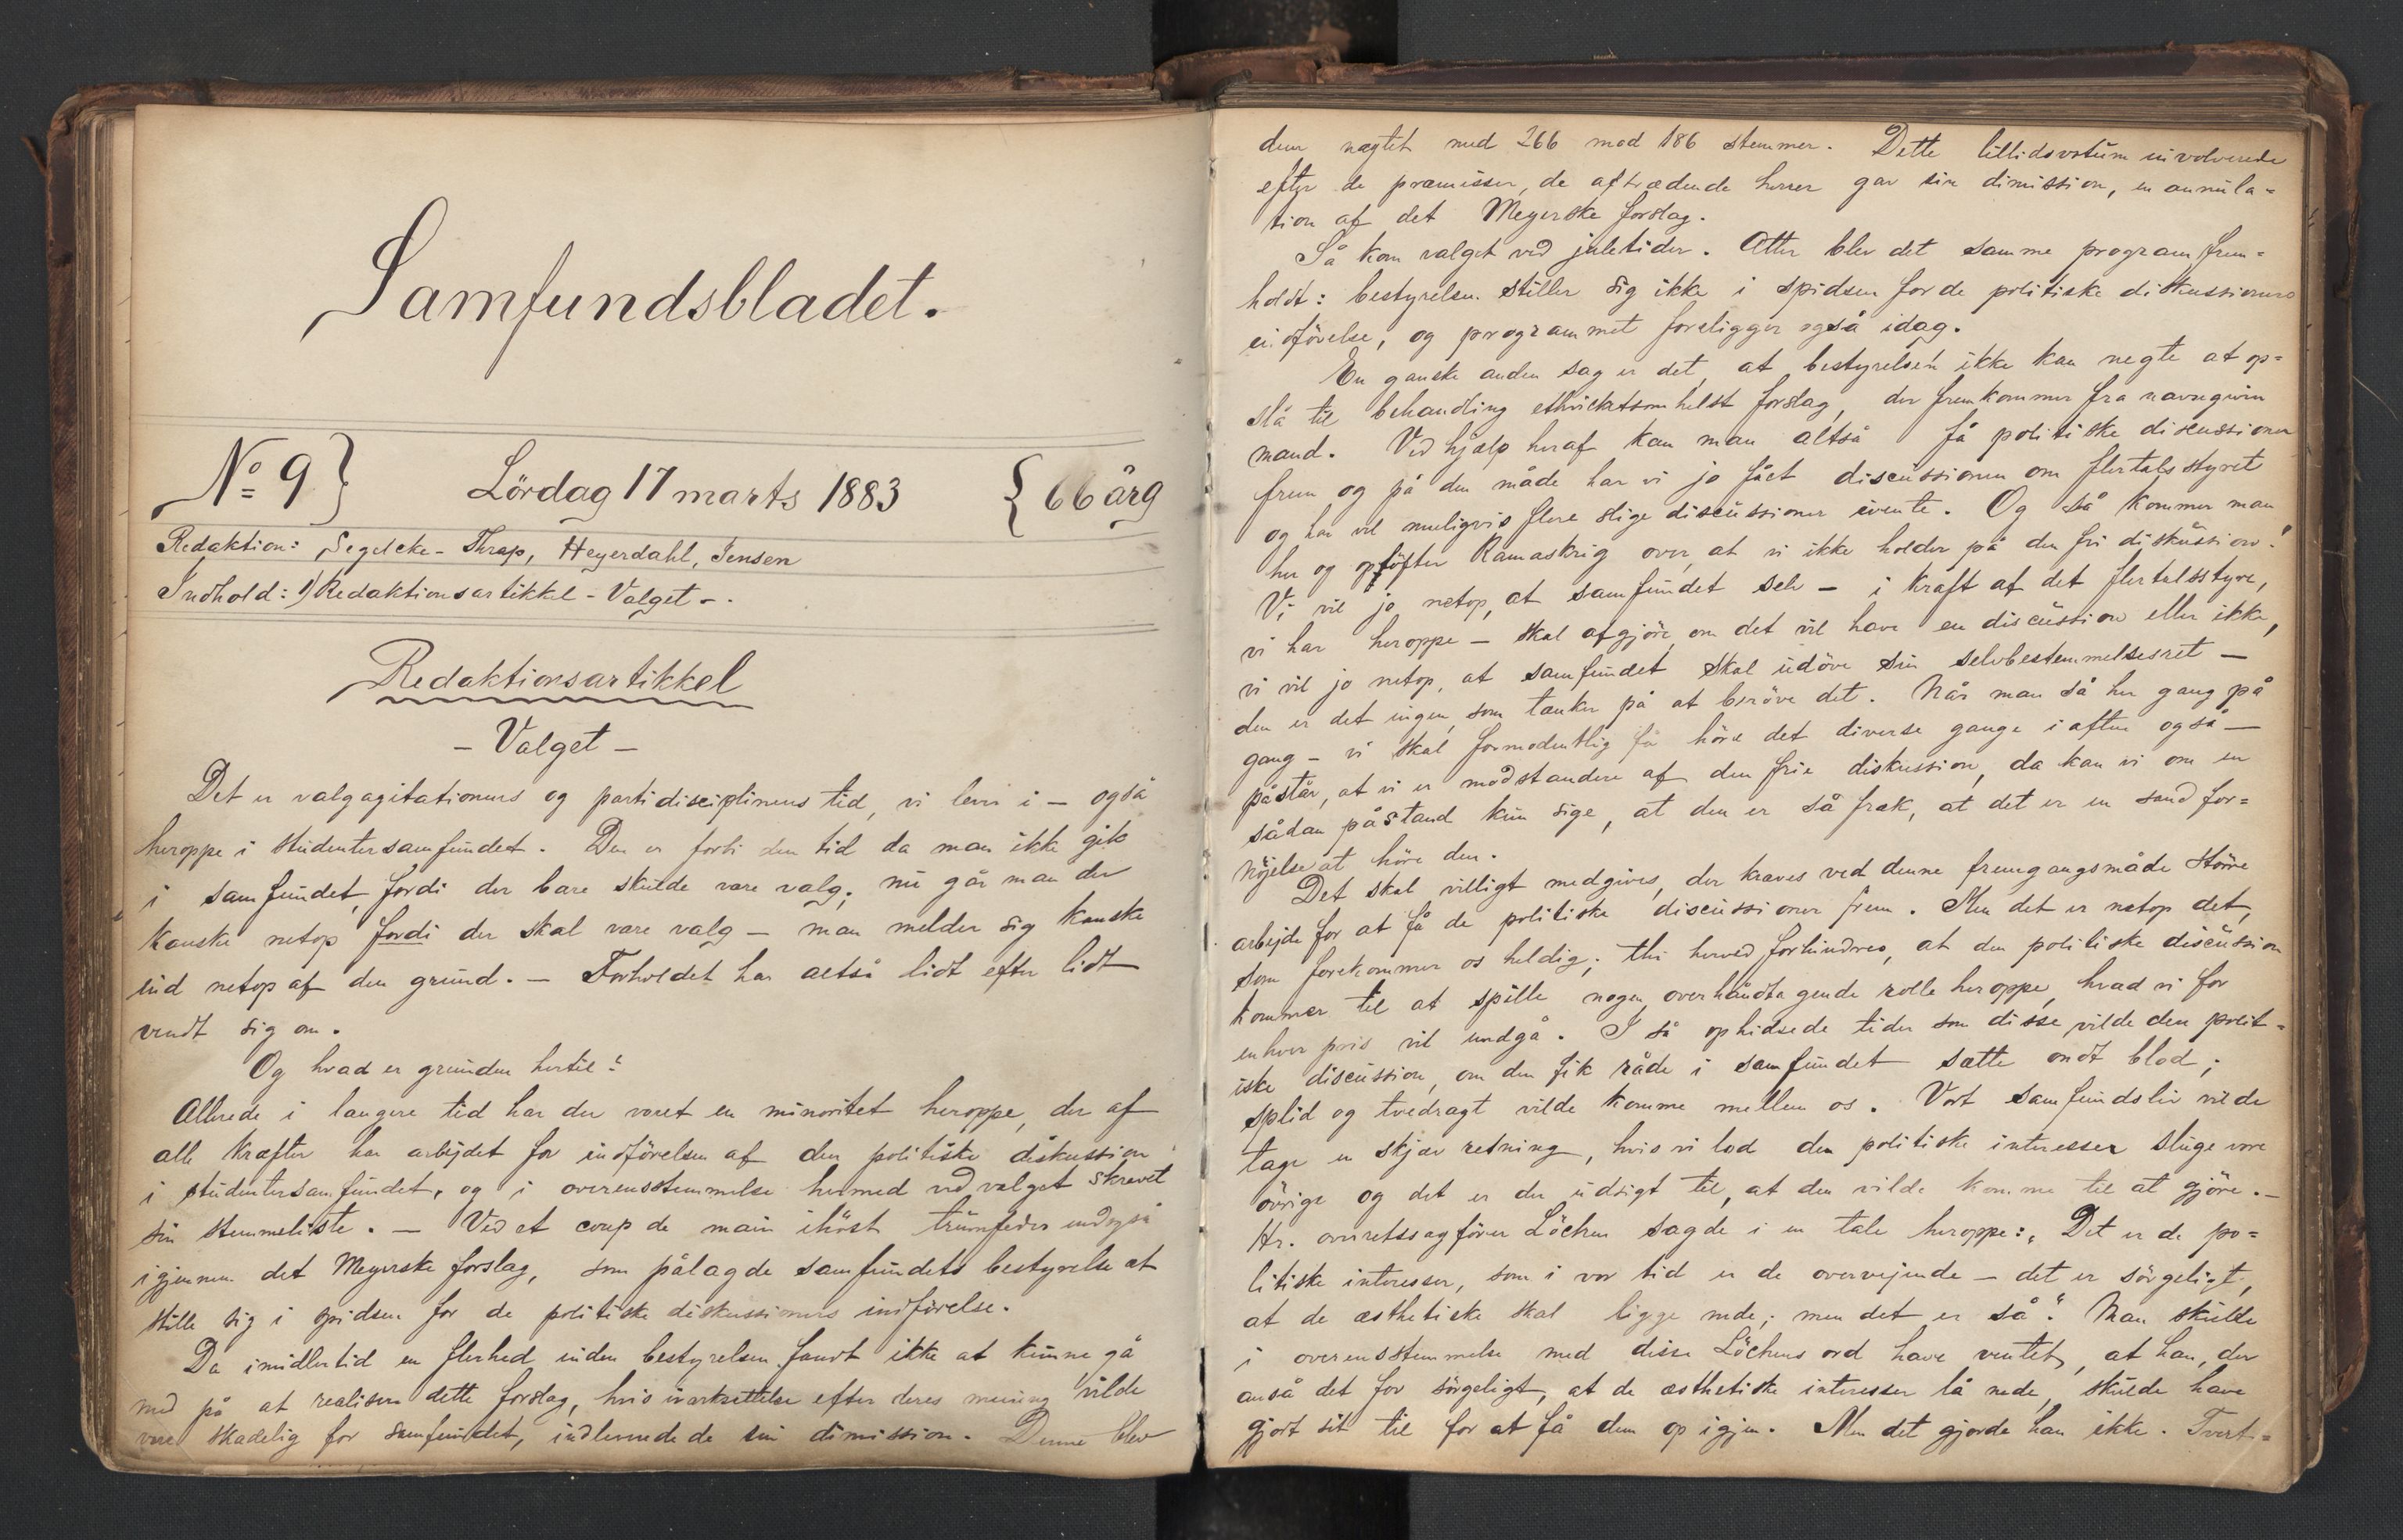 Samfundsbladet.
No 9} Lördag 17 marts 1883 {66 årg
Redaktion: Segelcke-Thrap, Heyerdahl, Jensen
Indhold: 1) Redaktionsartikkel - Valget -.
Redaktionsartikkel
- Valget -
Det er valgagitationens og partidisciplinens tid, vi lever i — også
heroppe i studentersamfundet. Den er forbi den tid da man ikke gik
i samfundet, fordi der bare skulde være valg; nu går man der
kanske netop fordi der skal være valg — man melder sig kanske
ind netop af den grund. — Forholdet har altså lidt efter lidt
vendt sig om.
Og hvad er grunden hertil?
Allerede i længere tid har der været en minoritet heroppe, der af
alle kræfter har arbejdet for indförelsen af den politiske diskussion
i studentersamfundet, og i overensstemmelse hermed ved valget skrevet
sin stemmeliste. — Ved et coup de main ihöst trumfedes endogså
igjennem det Meyerske forslag, som pålagde samfundets bestyrelse at
stille sig i spidsen for de politiske diskussioners indförelse.
Da imidlertid en flerhed inden bestyrelsen fandt ikke at kunne gå
med på at realisere dette forslag, hvis iværksættelse efter deres mening vilde
være skadelig for samfundet, indleverede de sin dimission. Denne blev
dem nægtet med 266 mod 186 stemmer. Dette tillidsvotum involverede
efter de præmisser, de aftrædende herrer gav sin dimission, en annula=
tion af det Meyerske forslag.
Så kom valget ved juletider. Atter blev det samme program frem=
holdt: bestyrelsen stiller sig ikke i spidsen for de politiske diskussioners
indförelse, og programmet foreligger også idag.
En ganske anden sag er det, at bestyrelsen ikke kan negte at op=
slå til behandling ethvicketsomhelst forslag, der fremkommer fra navngiven
mand. Ved hjælp heraf kan man altså få politiske discussioner
frem og på den måde har vi jo fået discussionen om flertalsstyret
og har vel muligvis flere slige discussioner ivente. Og så kommer man
her og opløfter Ramaskrig over, at vi ikke holder på den fri diskussion!
Vi vil jo netop, at samfundet selv — i kraft af det flertalsstyre,
vi har heroppe — skal afgjöre, om det vil have en discussion eller ikke,
vi vil jo netop, at samfundet skal udöve sin selvbestemmelsesret —
den er det ingen, som tænker på at beröve det. Når man så her gang på
gang — vi skal formodentlig få höre det diverse gange iaften også —
påstår, at vi er modstandere af den frie diskussion, da kan vi om en
sådan påstand kun sige, at den er så fræk, at det er en sand for=
nöjelse at höre den.
Det skal villigt medgives, der kræves ved denne fremgangsmåde större
arbejde for at få de politiske discussioner frem. Men det er netop det,
som forekommer os heldig; thi herved forhindres, at den politiske discussion
kommer til at spille nogen overhåndtagende rolle heroppe, hvad vi for
enhver pris vil undgå. I så ophidsede tider som disse vilde den polit=
iske discussion, om den fik råde i samfundet sætte ondt blod;
splid og tvedragt vilde komme mellem os. Vort samfundsliv vilde
tage en skjæv retning, hvis vi lod den politiske interesser sluge vore
övrige og det er der udsigt til, at den vilde komme til at gjöre. —
Hr. overretssagförer Löchen sagde i en tale heroppe: „Det er de po=
litiske interesser, som i vor tid er de overvejende — det er sörgeligt,
at de æsthetiske skal ligge nede; men det er så“. Man skulde
i overensstemmelse med disse Löchens ord have ventet, at han, der
anså det for sörgeligt, at de æsthetiske interesser lå nede, skulde have
gjort sit til for at få dem op igjen. Men det gjorde han ikke. Tvert=